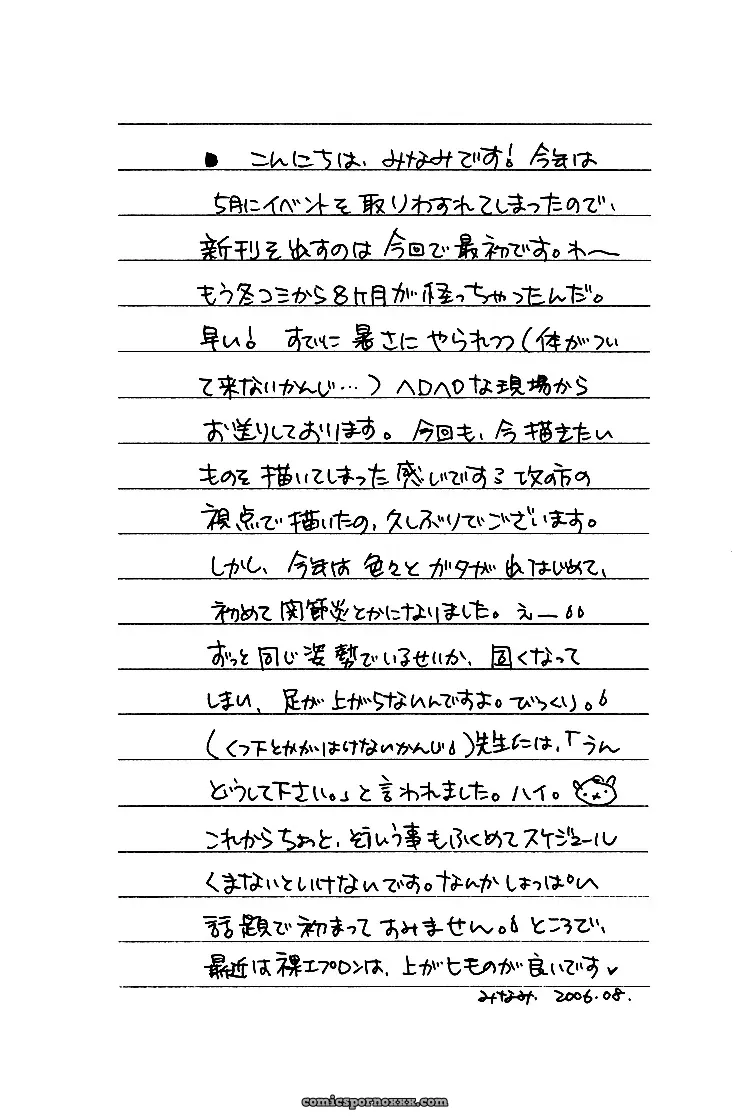 ● こんにちは、みなみです! 今年は
5月にイベントを取りわすれてしまったので、
新刊を出すのは今回で最初です。わ〜
もう冬コミから8ヶ月が経っちゃったんだ。
早い! すでに暑さにやられつつ(体がつい
て来ないかんじ…)ヘロヘロな現場から
お送りしております。今回も、今描きたい
ものを描いてしまった感じです 攻の方の
視点で描いたの、久しぶりでございます。
しかし、今年は色々とガタが出はじめて、
初めて関節炎とかになりました。えー
ずっと同じ姿勢でいるせいか、固くなって
しまい、足が上がらないんですよ。びっくり。
(くつ下とかがはけないかんじ)先生には、「うん
どうして下さい。」と言われました。ハイ。
これからちょっと、そういう事もふくめてスケジュール
くまないといけないです。なんかしょっぱい
話題で初まってすみません。ところで、
最近は裸エプロンは、上が七ものが良いです♥
みなみ. 2006.08.
comicspornoxxx.com